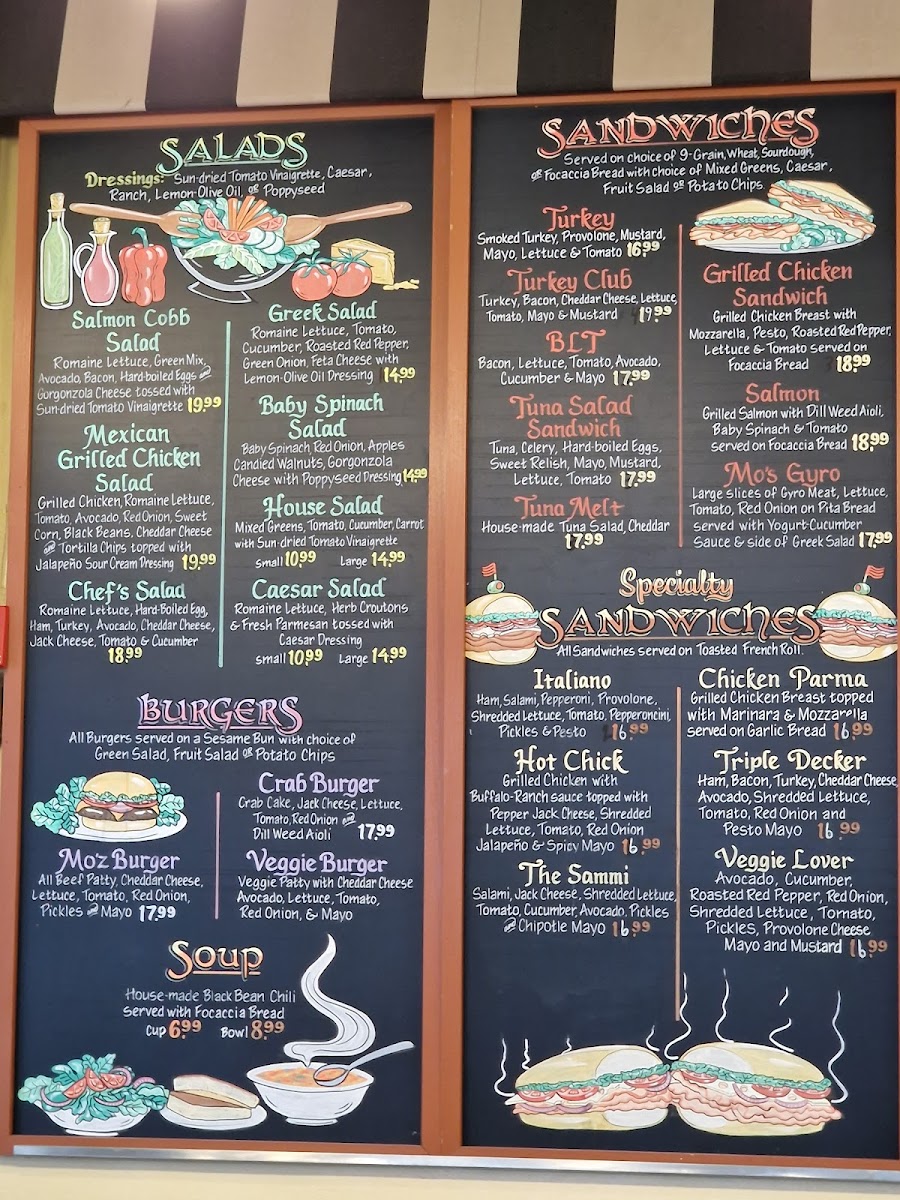 SALADS
Dressings: Sun-dried Tomato Vinaigrette, Caesar,
Ranch, Lemon-Olive Oil, or Poppyseed
Salmon Cobb
Salad
Romaine Lettuce, Green Mix,
Avocado, Bacon, Hard-boiled Eggs and
Gorgonzola Cheese tossed with
Sun-dried Tomato Vinaigrette 19.99
Mexican
Grilled Chicken
Salad
Grilled Chicken, Romaine Lettuce,
Tomato, Avocado, Red Onion, Sweet
Corn, Black Beans, Cheddar Cheese
and Tortilla Chips topped with
Jalapeño Sour Cream Dressing 19.99
Chef's Salad
Romaine Lettuce, Hard-Boiled Egg,
Ham, Turkey, Avocado, Cheddar Cheese,
Jack Cheese, Tomato & Cucumber
18.99
Greek Salad
Romaine Lettuce, Tomato,
Cucumber, Roasted Red Pepper,
Green Onion, Feta Cheese with
Lemon-Olive Oil Dressing 14.99
Baby Spinach
Salad
Baby Spinach, Red Onion, Apples
Candied Walnuts, Gorgonzola
Cheese with Poppyseed Dressing 14.99
House Salad
Mixed Greens, Tomato, Cucumber, Carrot
with Sun-dried Tomato Vinaigrette
Small 10.99 Large 14.99
Caesar Salad
Romaine Lettuce, Herb Croutons
& Fresh Parmesan tossed with
Caesar Dressing
Small 10.99 Large 14.99
BURGERS
All Burgers served on a Sesame Bun with choice of
Green Salad, Fruit Salad or Potato Chips
Mo'z Burger
All Beef Patty, Cheddar Cheese,
Lettuce, Tomato, Red Onion,
Pickles and Mayo 17.99
Crab Burger
Crab Cake, Jack Cheese, Lettuce,
Tomato, Red Onion and
Dill Weed Aioli 17.99
Veggie Burger
Veggie Patty with Cheddar Cheese
Avocado, Lettuce, Tomato,
Red Onion, & Mayo
Soup
House-made Black Bean Chili
Served with Focaccia Bread
Cup 6.99 Bowl 8.99
SANDWICHES
Served on choice of 9-Grain, Wheat, Sourdough,
or Focaccia Bread with choice of Mixed Greens, Caesar,
Fruit Salad or Potato Chips
Turkey
Smoked Turkey, Provolone, Mustard,
Mayo, Lettuce & Tomato 16.99
Turkey Club
Turkey, Bacon, Cheddar Cheese, Lettuce,
Tomato, Mayo & Mustard 19.99
BLT
Bacon, Lettuce, Tomato, Avocado,
Cucumber & Mayo 17.99
Tuna Salad
Sandwich
Tuna, Celery, Hard-boiled Eggs,
Sweet Relish, Mayo, Mustard,
Lettuce, Tomato 17.99
Tuna Melt
House-made Tuna Salad, Cheddar
17.99
Grilled Chicken
Sandwich
Grilled Chicken Breast with
Mozzarella, Pesto, Roasted Red Pepper,
Lettuce & Tomato served on
Focaccia Bread 18.99
Salmon
Grilled Salmon with Dill Weed Aioli,
Baby Spinach & Tomato
served on Focaccia Bread 18.99
Mo's Gyro
Large slices of Gyro Meat, Lettuce,
Tomato, Red Onion on Pita Bread
served with Yogurt-Cucumber
Sauce & side of Greek Salad 17.99
Specialty
SANDWICHES
All Sandwiches served on Toasted French Roll.
Italiano
Ham, Salami, Pepperoni, Provolone,
Shredded Lettuce, Tomato, Pepperoncini,
Pickles & Pesto 16.99
Hot Chick
Grilled Chicken with
Buffalo-Ranch sauce topped with
Pepper Jack Cheese, Shredded
Lettuce, Tomato, Red Onion
Jalapeño & Spicy Mayo 16.99
The Sammi
Salami, Jack Cheese, Shredded Lettuce,
Tomato, Cucumber, Avocado, Pickles
and Chipotle Mayo 16.99
Chicken Parma
Grilled Chicken Breast topped
with Marinara & Mozzarella
served on Garlic Bread 16.99
Triple Decker
Ham, Bacon, Turkey, Cheddar Cheese
Avocado, Shredded Lettuce,
Tomato, Red Onion and
Pesto Mayo 16.99
Veggie Lover
Avocado, Cucumber,
Roasted Red Pepper, Red Onion,
Shredded Lettuce, Tomato,
Pickles, Provolone Cheese
Mayo and Mustard 16.99